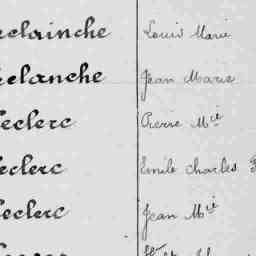 eclainche Louis Marie
elanche Jean Marie
Leclerc Pierre Mie
Leclerc Emile Charles
Leclerc Jean Mie